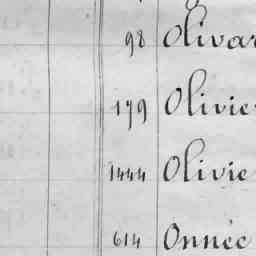 98 Olivar
179 Olivie
1444 Olivie
614 Onnée